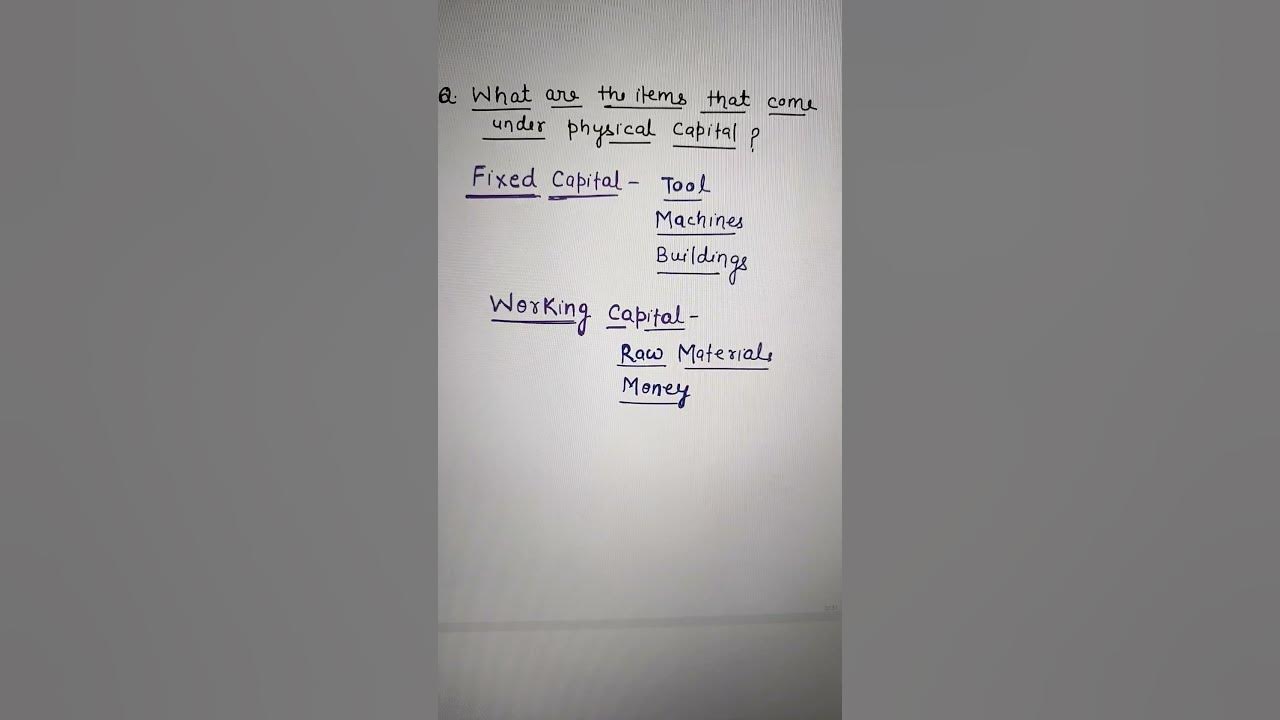 Q. What are the items that come
under physical capital ?
Fixed Capital - Tool
Machines
Buildings
Working Capital -
Raw Materials
Money